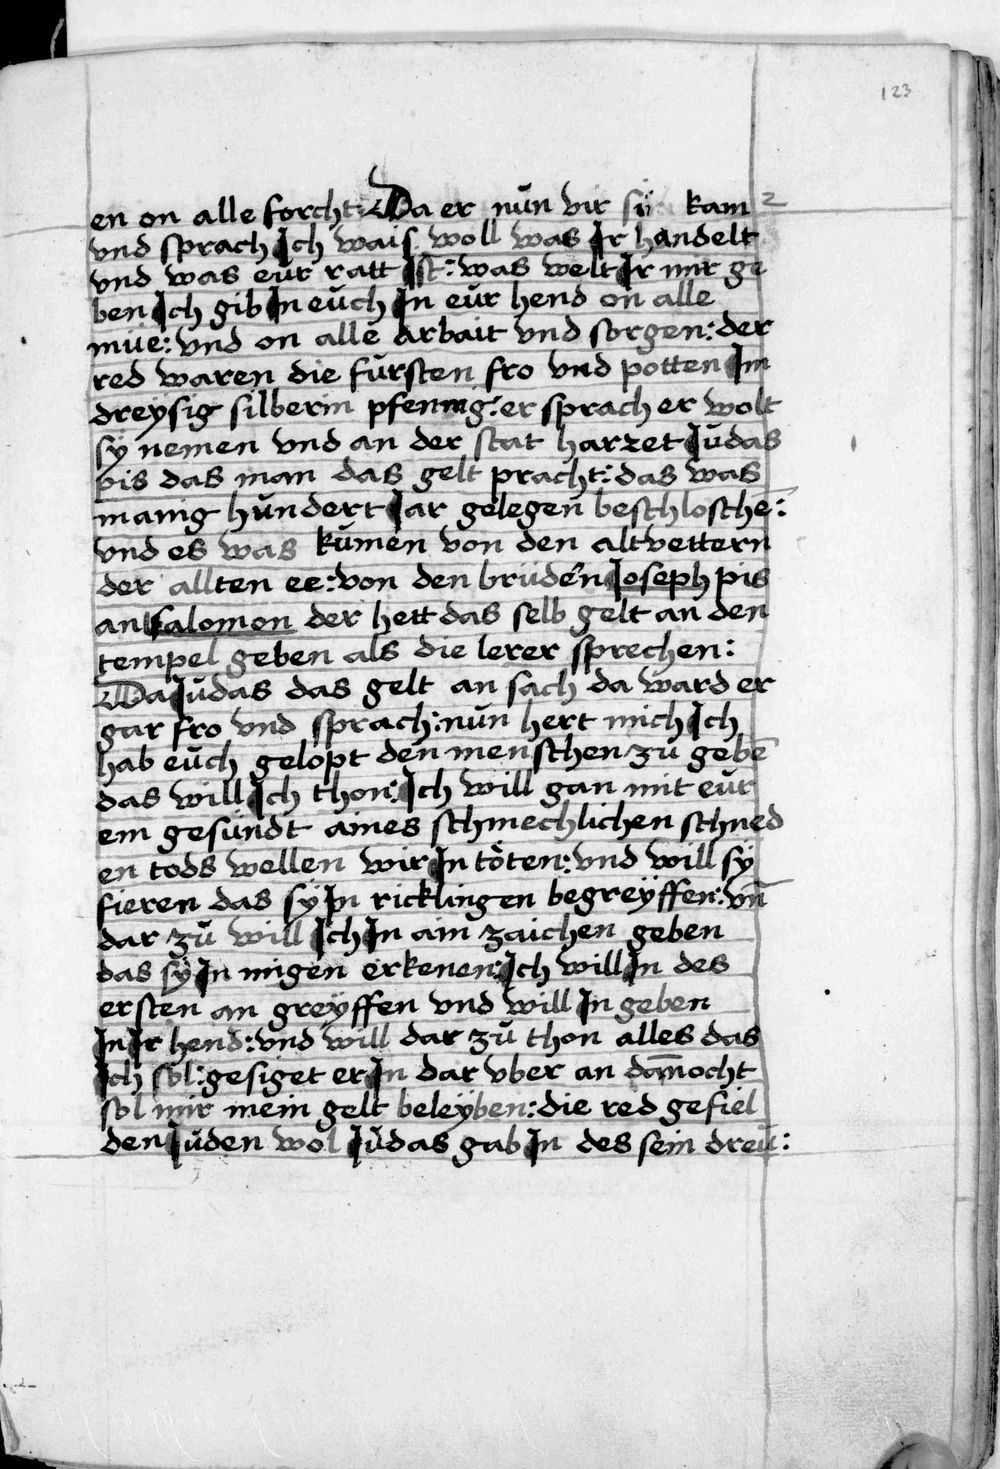 123
en on alle forcht: Da er nŭn vir sÿ kam
vnd sprach Ich wais woll was Ir handelt
vnd was eŭr ratt Ist: was welt Ir mir ge
ben Ich gib In eŭch In eŭr hend on alle
müe: vnd on alle arbait vnd sorgen: der
red waren die fŭrsten fro vnd potten Im
dreÿsig silberin pfennig: er sprach er wolt
sÿ nemen vnd an der stat harzet Iŭdas
pis das man das gelt pracht: das was
manig hŭndert Iar gelegen beschlosche:
vnd es was kŭmen von den altvettern
der allten ee: von den brüdern Ioseph pis
an Salomon der hett das selb gelt an den
tempel geben als die lerer sprechen:
Da Iŭdas das gelt an sach da ward er
gar fro vnd sprach: nŭn hert mich Ich
hab eŭch gelopt den menschen zŭ gebē
das will Ich thon: Ich will gan mit eŭr
em gesündt aines schmechlichen schned
en tods wellen wir In töten: vnd will sÿ
fieren das sÿ In ricklingen begreÿffen: vn̄
dar zŭ will Ich In ain zaichen geben
das sÿ In migen erkenen: Ich will In des
ersten an greÿffen vnd will In geben
In Ir hend: vnd will dar zŭ thon alles das
Ich sol: gesiget er In dar vber an dan̄ocht
sol mir mein gelt beleÿben: die red gefiel
den Iŭden wol Iŭdas gab In des sein dreŭ: